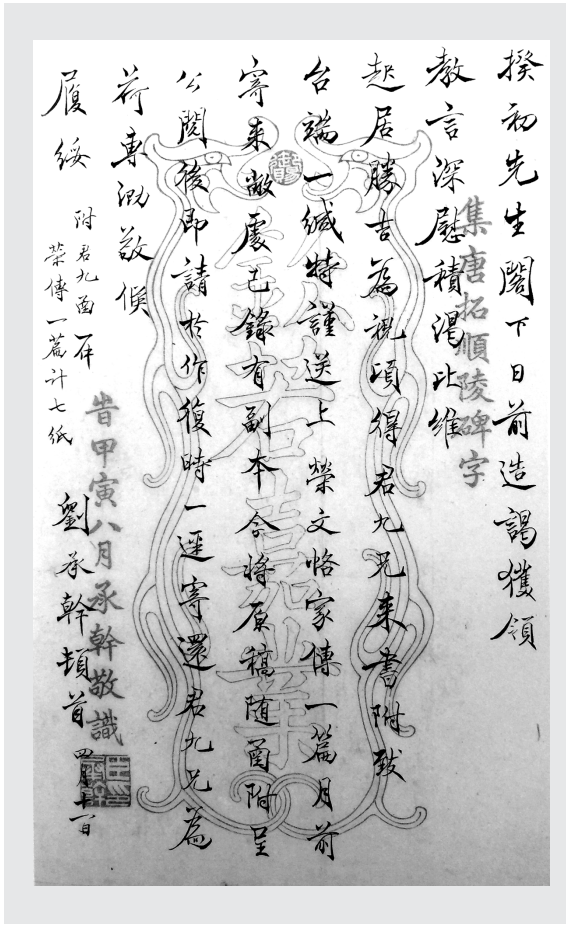 揆初先生閣下日前造謁獲領
教言深慰積渴比維
起居勝吉為祝頃得君九兄来書附致
台端一緘特謹送上榮文恪家傳一篇月前
寄来敝處已錄有副本今將原稿随函附呈
公閱後即請於作復時一逕寄還君九兄為
荷專泐敬候
履綏
附君九函一件
榮傳一篇計七紙
劉承幹頓首四月十一日
集唐拓順陵碑字
旹甲寅八月承幹敬識